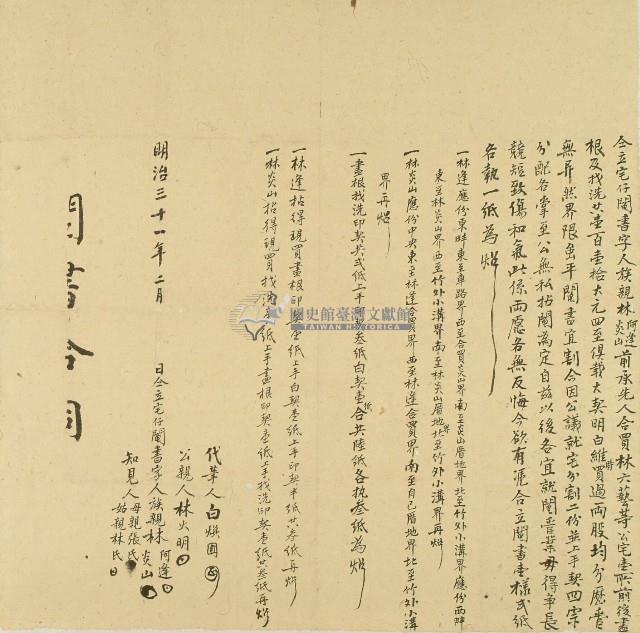 仝立宅仔鬮書字人族親林阿逢炎山前承先人合買林六藝等公宅壹所前後畫
根及找洗共壹百壹拾大元四至得載大契明白維時買過兩股均分歷管
無异然界限岳平鬮書宜割今因公議就宅分割二份並上手契四字
分配各掌至公無私拈鬮為定自茲以後各宜就鬮管業毋得爭長
競短致傷和氣此係兩愿各無反悔今欲有憑合立鬮書壹樣弍紙
各執一紙為炤
一林逢應份東畔東至車路界西至合買炎山界南至炎山厝地界北至竹外小溝界應份西畔
東至林炎山界西至竹外小溝界南至林炎山厝地界北至竹外小溝界再炤
一林炎山應份中央東至林逢合買界西至林逢合買界南至自己厝地界北至竹外小溝
界再炤
一畫根找洗印契共弍紙上手叁紙白契壹紙合共陸紙各执叁紙為炤
一林逢拈得現買畫根印契壹紙上手白契壹紙上手印契半紙共叁紙再炤
一林炎山拈得現買找洗紙上手畫根印契壹紙上手找洗印契壹紙共叁紙再炤
代筆人白煥圓
公親人林火明
知見人母親張氏姑親林氏
明治三十一年二月 日仝立宅仔鬮書字人族親林阿逢炎山
鬮書合同
國史館臺灣文獻館
TAIWAN HISTORICA